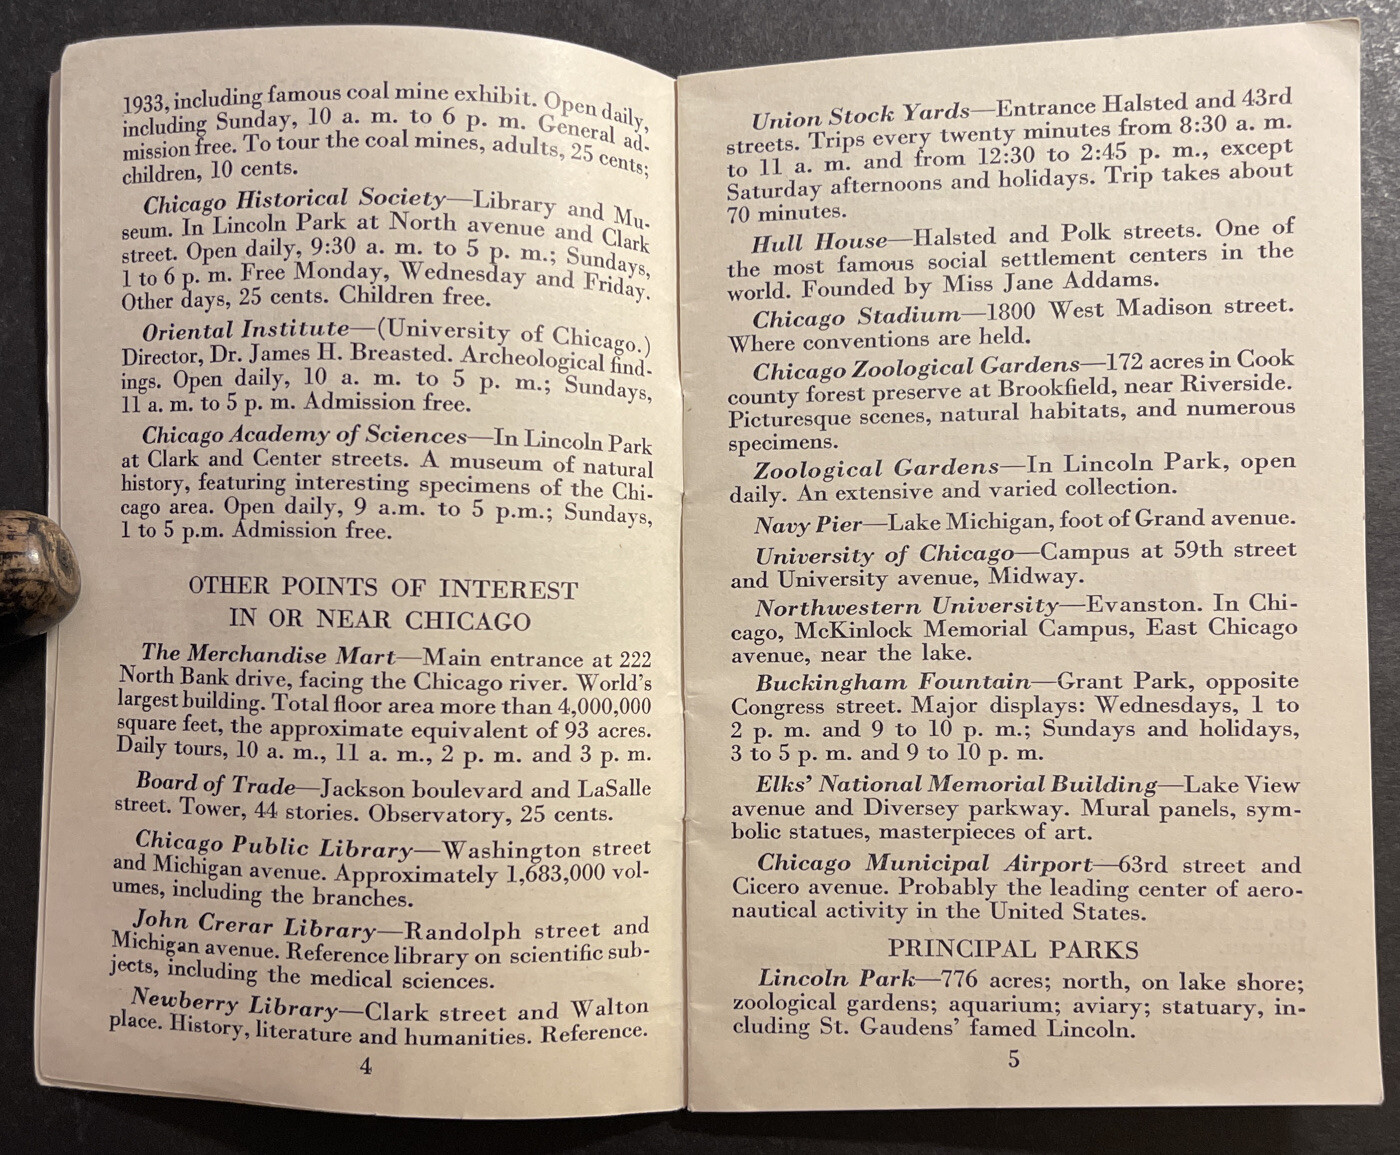 1933, including famous coal mine exhibit. Open daily,
including Sunday, 10 a. m. to 6 p. m. General ad-
mission free. To tour the coal mines, adults, 25 cents;
children, 10 cents.
Chicago Historical Society—Library and Mu-
seum. In Lincoln Park at North avenue and Clark
street. Open daily, 9:30 a. m. to 5 p. m.; Sundays,
1 to 6 p. m. Free Monday, Wednesday and Friday.
Other days, 25 cents. Children free.
Oriental Institute—(University of Chicago.)
Director, Dr. James H. Breasted. Archeological find-
ings. Open daily, 10 a. m. to 5 p. m.; Sundays,
11 a. m. to 5 p. m. Admission free.
Chicago Academy of Sciences—In Lincoln Park
at Clark and Center streets. A museum of natural
history, featuring interesting specimens of the Chi-
cago area. Open daily, 9 a.m. to 5 p.m.; Sundays,
1 to 5 p.m. Admission free.
OTHER POINTS OF INTEREST
IN OR NEAR CHICAGO
The Merchandise Mart—Main entrance at 222
North Bank drive, facing the Chicago river. World's
largest building. Total floor area more than 4,000,000
square feet, the approximate equivalent of 93 acres.
Daily tours, 10 a. m., 11 a. m., 2 p. m. and 3 p. m.
Board of Trade—Jackson boulevard and LaSalle
street. Tower, 44 stories. Observatory, 25 cents.
Chicago Public Library—Washington street
and Michigan avenue. Approximately 1,683,000 vol-
umes, including the branches.
John Crerar Library—Randolph street and
Michigan avenue. Reference library on scientific sub-
jects, including the medical sciences.
Newberry Library—Clark street and Walton
place. History, literature and humanities. Reference.
4
Union Stock Yards—Entrance Halsted and 43rd
streets. Trips every twenty minutes from 8:30 a. m.
to 11 a. m. and from 12:30 to 2:45 p. m., except
Saturday afternoons and holidays. Trip takes about
70 minutes.
Hull House—Halsted and Polk streets. One of
the most famous social settlement centers in the
world. Founded by Miss Jane Addams.
Chicago Stadium—1800 West Madison street.
Where conventions are held.
Chicago Zoological Gardens—172 acres in Cook
county forest preserve at Brookfield, near Riverside.
Picturesque scenes, natural habitats, and numerous
specimens.
Zoological Gardens—In Lincoln Park, open
daily. An extensive and varied collection.
Navy Pier—Lake Michigan, foot of Grand avenue.
University of Chicago—Campus at 59th street
and University avenue, Midway.
Northwestern University—Evanston. In Chi-
cago, McKinlock Memorial Campus, East Chicago
avenue, near the lake.
Buckingham Fountain—Grant Park, opposite
Congress street. Major displays: Wednesdays, 1 to
2 p. m. and 9 to 10 p. m.; Sundays and holidays,
3 to 5 p. m. and 9 to 10 p. m.
Elks' National Memorial Building—Lake View
avenue and Diversey parkway. Mural panels, sym-
bolic statues, masterpieces of art.
Chicago Municipal Airport—63rd street and
Cicero avenue. Probably the leading center of aero-
nautical activity in the United States.
PRINCIPAL PARKS
Lincoln Park—776 acres; north, on lake shore;
zoological gardens; aquarium; aviary; statuary, in-
cluding St. Gaudens' famed Lincoln.
5